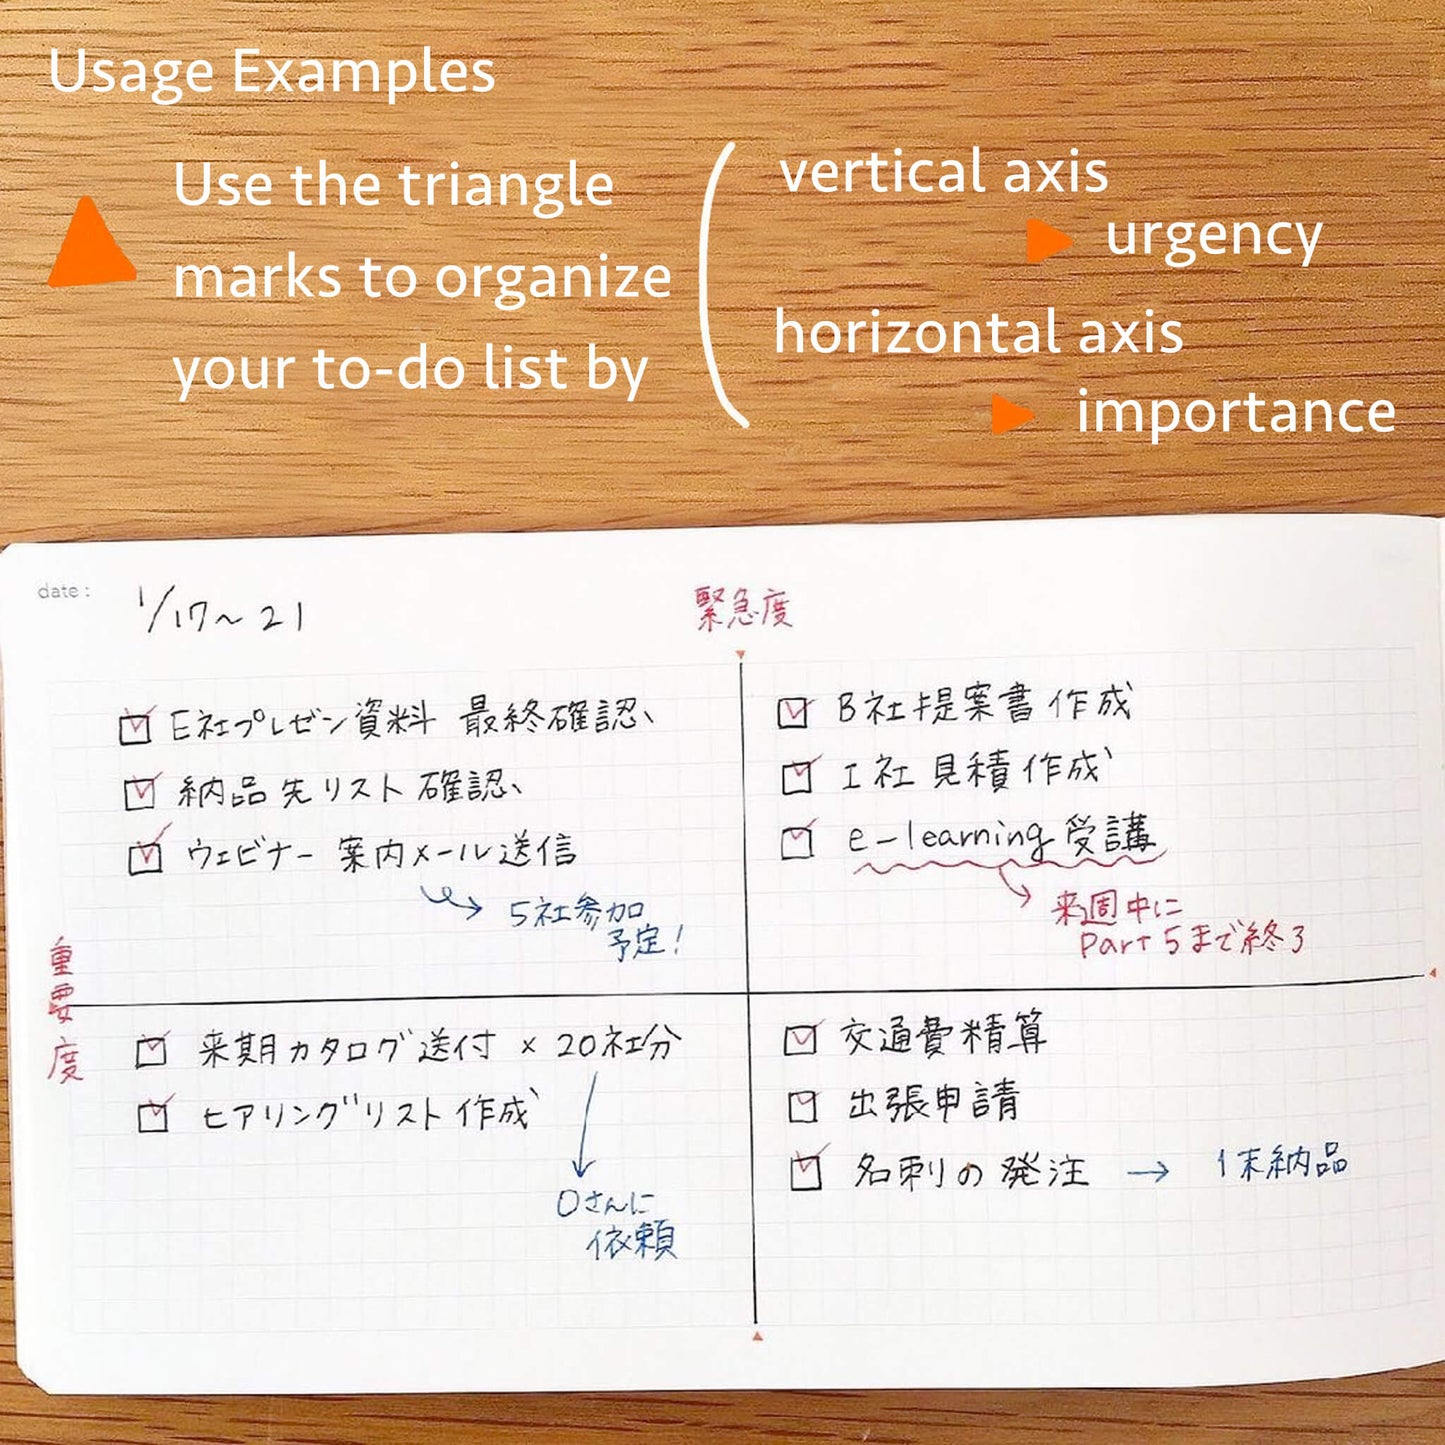 Usage Examples
Use the triangle
marks to organize
your to-do list by
vertical axis
urgency
horizontal axis
importance
date :
1/17～21
緊急度
重要度
E社プレゼン資料 最終確認、
納品先リスト確認、
ウェビナー案内メール送信
5社参加
予定!
B社提案書作成
I社見積作成
e-learning受講
来週中に
Part 5まで終了
来期カタログ送付 × 20社分
ヒアリングリスト作成
Oさんに
依頼
交通費精算
出張申請
名刺の発注 → 1末納品